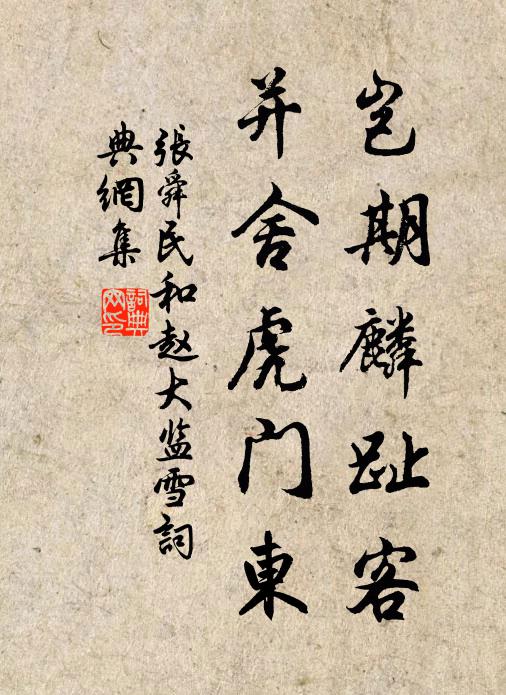 岂期麟趾客
并舍虎门東
張舜民和赵大监雪詞
典網集
詞典
网印